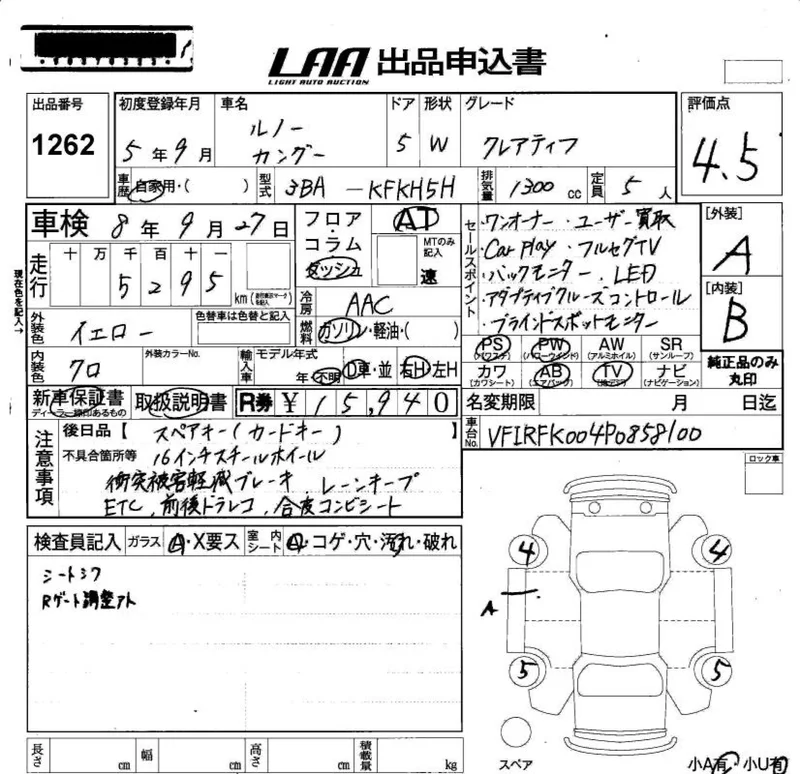 LAA 出品申込書
LIGHT AUTO AUCTION
出品番号
1262
初度登録年月
5年9月
車名
ルノー
カングー
ドア
5
形状
W
グレード
クレアティフ
評価点
4.5
車歴 自家用・( )
型式 3BA-KFKH5H
排気量 1300cc
定員 5人
車検 8年9月27日
フロア・コラム ダッシュ
AT
MTのみ記入
速
セールスポイント
・ワンオーナー・ユーザー買取
・Car Play・フルセグTV
・バックモニター・LED
・アダプティブクルーズコントロール
・ブラインドスポットモニター
[外装]
A
[内装]
B
現在色を記入→
走行
十 万 千 百 十 一
5 2 9 5
km
冷房 AAC
燃料 ガソリン・軽油・( )
外装色 イエロー
色替車は色替と記入
内装色 クロ
外装カラーNo.
輸入車
モデル年式
年・不明
D車・並
右H・左H
PS (パワステ)
PW (パワーウインド)
AW (アルミホイル)
SR (サンルーフ)
カワ (カワシート)
AB (エアバッグ)
TV
ナビ (ナビゲーション)
純正品のみ丸印
新車保証書
ディーラー線印あるもの
取扱説明書
R券 ¥15,940
名変期限 月 日迄
車台No. VF1RFK004P0858100
注意事項
後日品【スペアキー(カードキー)】
不具合箇所等 16インチスチールホイール
衝突被害軽減ブレーキ、レーンキープ
ETC、前後ドラレコ、合皮コンビシート
ロック車
検査員記入
ガラス A・X要ス
室内シート A・コゲ・穴・汚れ・破れ
シートシワ
Rゲート調整アト
4
4
A
5
5
スペア
小A有 小U有
長さ cm
幅 cm
高さ cm
積載量 kg